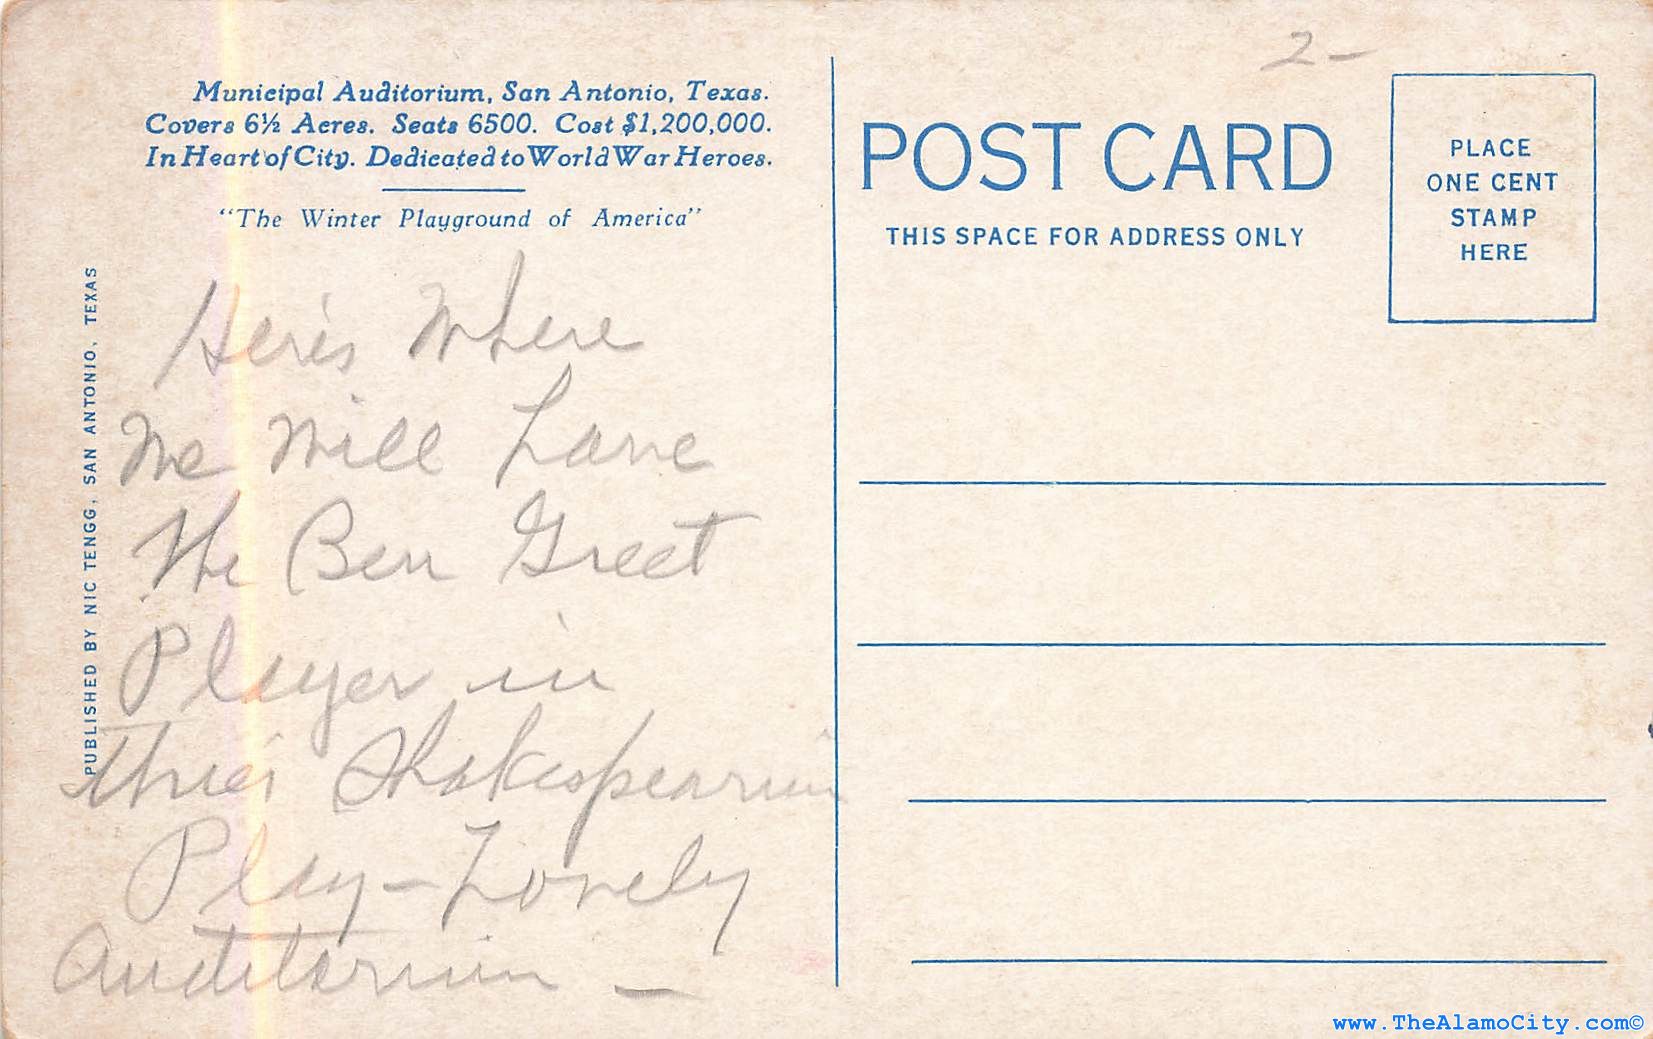 Municipal Auditorium, San Antonio, Texas.
Covers 6½ Acres. Seats 6500. Cost $1,200,000.
In Heart of City. Dedicated to World War Heroes.
"The Winter Playground of America"
PUBLISHED BY NIC TENGG, SAN ANTONIO, TEXAS
Here's Where
We Will have
the Ben Greet
Player in
their Shakespearian
Play – Lovely
Auditorium –
2-
POST CARD
THIS SPACE FOR ADDRESS ONLY
PLACE
ONE CENT
STAMP
HERE
www.TheAlamoCity.com©